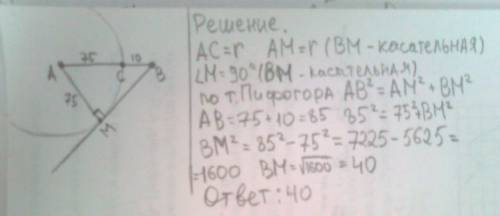 75 10
A C B
75
M
Решение.
AC=r AM=r (BM-касательная)
∠M=90° (BM-касательная)
по т. Пифогора AB²=AM²+BM²
AB=75+10=85 85²=75²+BM²
BM²=85²-75²=7225-5625=
=1600 BM=√1600=40
Ответ: 40